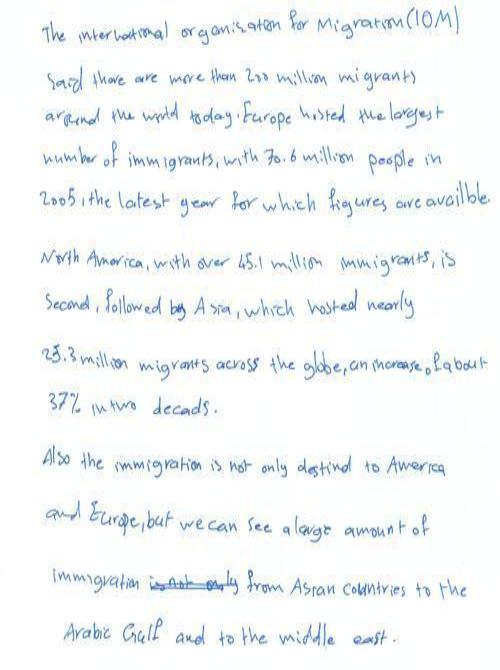 The international organisation for Migration (IOM)
Said there are more than 200 million migrants
around the world today. Europe hosted the largest
number of immigrants, with 70.6 million people in
2005, the latest year for which figures are availble.
North America, with over 45.1 million immigrants, is
Second, followed by Asia, which hosted nearly
25.3 million migrants across the globe, an increase of about
37% in two decads.
Also the immigration is not only destind to America
and Europe, but we can see a large amount of
immigration is not only from Asian countries to the
Arabic Gulf and to the middle east.